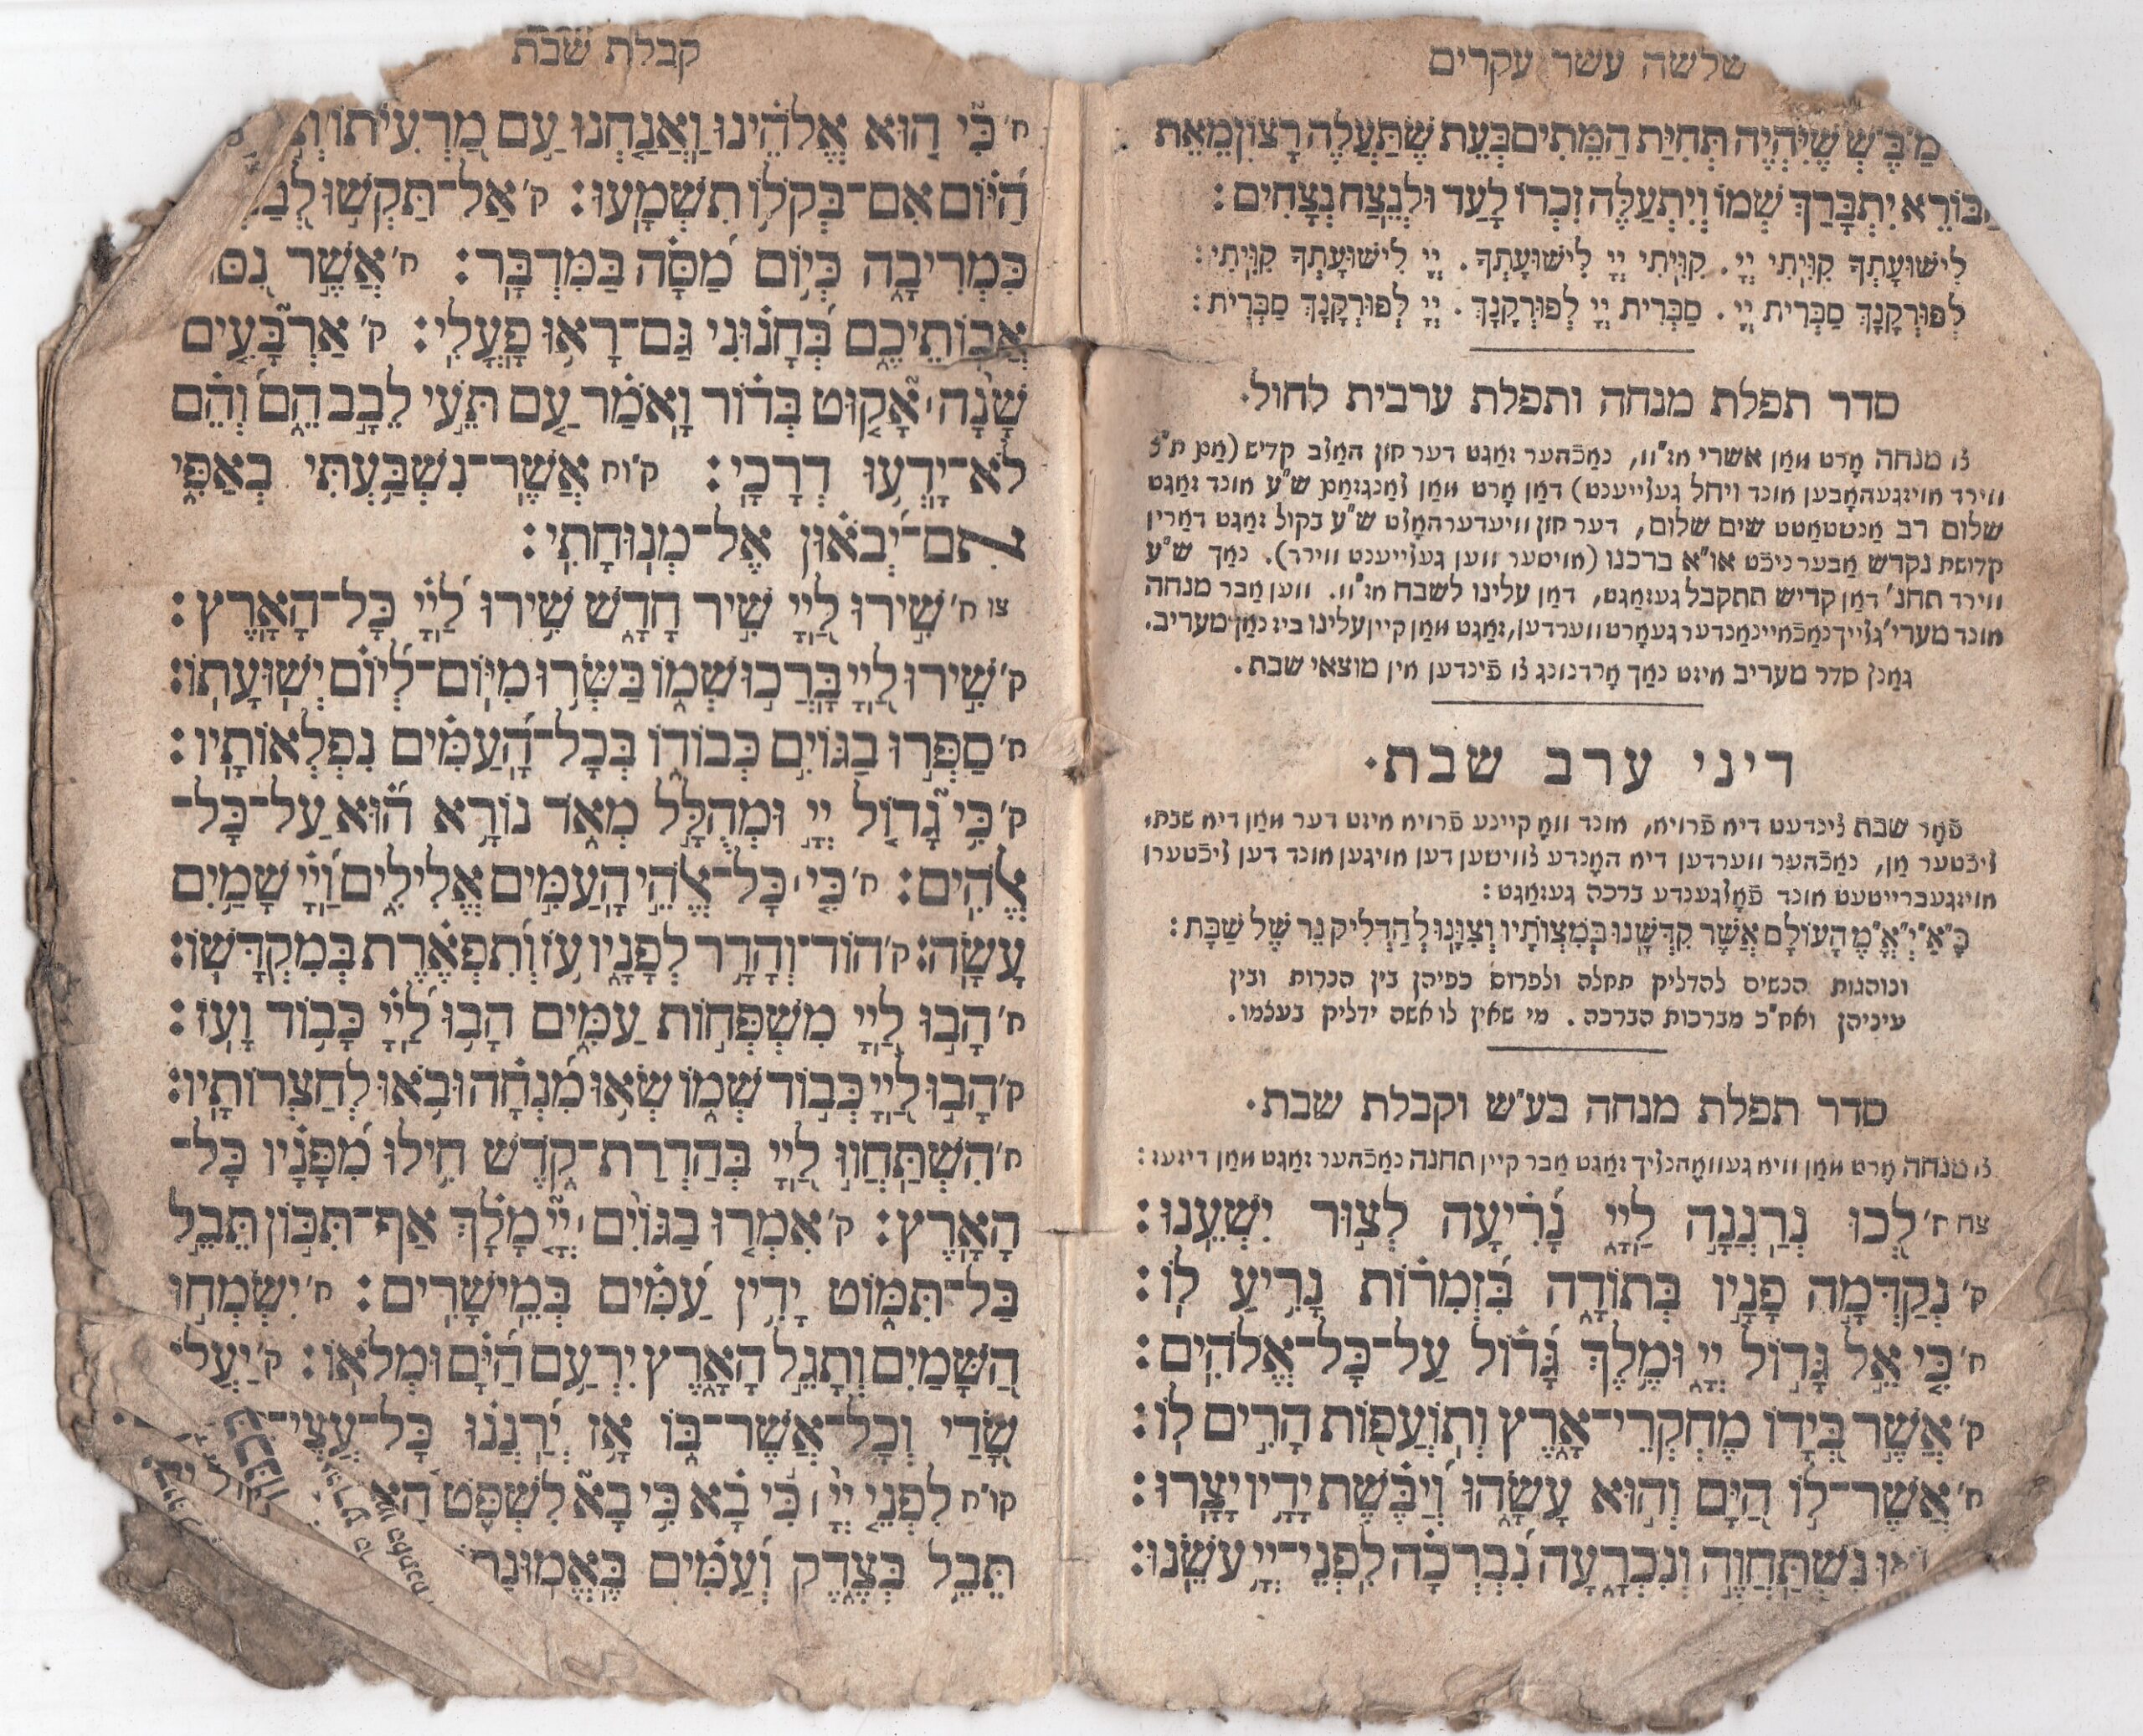 שלשה עשר עקרים
מַ״בֶּ״שְׁ שֶׁיִּהְיֶה תְּחִיַּת הַמֵּתִים בְּעֵת שֶׁתַּעֲלֶה רָצוֹן מֵאֵת
הַבּוֹרֵא יִתְבָּרַךְ שְׁמוֹ וְיִתְעַלֶּה זִכְרוֹ לָעַד וּלְנֵצַח נְצָחִים׃
לִישׁוּעָתְךָ קִוִּיתִי יְיָ. קִוִּיתִי יְיָ לִישׁוּעָתְךָ. יְיָ לִישׁוּעָתְךָ קִוִּיתִי׃
לְפוּרְקָנָךְ סַבְּרִית יְיָ. סַבְּרִית יְיָ לְפוּרְקָנָךְ. יְיָ לְפוּרְקָנָךְ סַבְּרִית׃
סדר תפלת מנחה ותפלת ערבית לחול.
צו מנחה אָרט מאַן אשרי אז״וו, נאַכֿהער זאַגט דער חזן האַלב קדיש (אַם ת״צ
ווירד אויזגעהאָבען אונד ויחל געלייענט) דאַן אָרט מאַן לאַנגזאַם ש״ע אונד זאַגט
שלום רב אַנשטאַטט שים שלום, דער חזן וויעדערהאָלט ש״ע בקול זאַגט דאַרין
קדושת נקדש אַבער ניכֿט או״א ברכנו (אויסער ווען געלייענט ווירד). נאַך ש״ע
ווירד תחנ׳ דאַן קדיש תתקבל געזאַגט, דאַן עלינו לשבח אז״וו. ווען אַבר מנחה
אונד מערי׳ גלייך נאַכֿאיינאַנדער געאָרט ווערדען, זאַגט מאַן קיין עלינו ביז נאַך מעריב.
גאַנץ סדר מעריב איזט נאַך אָרדנונג צו פֿינדען אין מוצאי שבת.
דיני ערב שבת.
פֿאָר שבת צינדעט דיא פֿרויא, אונד וואָ קיינע פֿרויא איזט דער מאַן דיא שבת,
ליכֿטער אַן, נאַכֿהער ווערדען דיא האָנדע צווישען דען אויגען אונד דען ליכֿטערן
אויזגעברייטעט אונד פֿאָלגענדע ברכה געזאַגט׃
בָּ״אַ״יְ״אֱ״מֶ הָעוֹלָם אֲשֶׁר קִדְּשָׁנוּ בְּמִצְוֹתָיו וְצִוָּנוּ לְהַדְלִיק נֵר שֶׁל שַׁבָּת׃
ונוהגות הנשים להדליק תחלה ולפרוס כפיהן בין הנרות ובין
עיניהן ואח״כ מברכות הברכה. מי שאין לו אשה ידליק בעצמו.
סדר תפלת מנחה בע״ש וקבלת שבת.
צו מנחה אָרט מאַן וויא געוואָהנליך זאַגט אבר קיין תחנה נאַכֿהער זאַגט מאַן דיזעז׃
צה ח׳ לְכוּ נְרַנְּנָה לַיְיָ נָרִיעָה לְצוּר יִשְׁעֵנוּ׃
ק׳ נְקַדְּמָה פָנָיו בְּתוֹדָה בִּזְמִרוֹת נָרִיעַ לוֹ׃
ח׳ כִּי אֵל גָּדוֹל יְיָ וּמֶלֶךְ גָּדוֹל עַל־כָּל־אֱלֹהִים׃
ק׳ אֲשֶׁר בְּיָדוֹ מֶחְקְרֵי־אָרֶץ וְתוֹעֲפוֹת הָרִים לוֹ׃
ח׳ אֲשֶׁר־לוֹ הַיָּם וְהוּא עָשָׂהוּ וְיַבֶּשֶׁת יָדָיו יָצָרוּ׃
נִשְׁתַּחֲוֶה וְנִכְרָעָה נִבְרְכָה לִפְנֵי־יְיָ עֹשֵׂנוּ׃
קבלת שבת
ח׳ כִּי הוּא אֱלֹהֵינוּ וַאֲנַחְנוּ עַם מַרְעִיתוֹ
הַיּוֹם אִם־בְּקֹלוֹ תִשְׁמָעוּ׃ ק׳ אַל־תַּקְשׁוּ
כִּמְרִיבָה כְּיוֹם מַסָּה בַּמִּדְבָּר׃ ח׳ אֲשֶׁר
אֲבוֹתֵיכֶם בְּחָנוּנִי גַּם־רָאוּ פָעֳלִי׃ ק׳ אַרְבָּעִים
שָׁנָה׀ אָקוּט בְּדוֹר וָאֹמַר עַם תֹּעֵי לֵבָב הֵם וְהֵם
לֹא־יָדְעוּ דְרָכָי׃ ק״וח אֲשֶׁר־נִשְׁבַּעְתִּי בְאַפִּי
אִם־יְבֹאוּן אֶל־מְנוּחָתִי׃
צו ח׳ שִׁירוּ לַיְיָ שִׁיר חָדָשׁ שִׁירוּ לַיְיָ כָּל־הָאָרֶץ׃
ק׳ שִׁירוּ לַיְיָ בָּרְכוּ שְׁמוֹ בַּשְּׂרוּ מִיּוֹם־לְיוֹם יְשׁוּעָתוֹ׃
ח׳ סַפְּרוּ בַגּוֹיִם כְּבוֹדוֹ בְּכָל־הָעַמִּים נִפְלְאוֹתָיו׃
ק׳ כִּי גָדוֹל יְיָ וּמְהֻלָּל מְאֹד נוֹרָא הוּא עַל־כָּל־
אֱלֹהִים׃ ח׳ כִּי׀ כָּל־אֱלֹהֵי הָעַמִּים אֱלִילִים וַיְיָ שָׁמַיִם
עָשָׂה׃ ק׳ הוֹד־וְהָדָר לְפָנָיו עֹז וְתִפְאֶרֶת בְּמִקְדָּשׁוֹ׃
ח׳ הָבוּ לַיְיָ מִשְׁפְּחוֹת עַמִּים הָבוּ לַיְיָ כָּבוֹד וָעֹז׃
ק׳ הָבוּ לַיְיָ כְּבוֹד שְׁמוֹ שְׂאוּ מִנְחָה וּבֹאוּ לְחַצְרוֹתָיו׃
ח׳ הִשְׁתַּחֲווּ לַיְיָ בְּהַדְרַת־קֹדֶשׁ חִילוּ מִפָּנָיו כָּל־
הָאָרֶץ׃ ק׳ אִמְרוּ בַגּוֹיִם׀ יְיָ מָלָךְ אַף־תִּכּוֹן תֵּבֵל
בַּל־תִּמּוֹט יָדִין עַמִּים בְּמֵישָׁרִים׃ ח׳ יִשְׂמְחוּ
הַשָּׁמַיִם וְתָגֵל הָאָרֶץ יִרְעַם הַיָּם וּמְלֹאוֹ׃ ק׳ יַעֲלֹז
שָׂדַי וְכָל־אֲשֶׁר־בּוֹ אָז יְרַנְּנוּ כָּל־עֲצֵי־
קו״ח לִפְנֵי יְיָ׀ כִּי בָא כִּי בָא לִשְׁפֹּט
תֵּבֵל בְּצֶדֶק וְעַמִּים